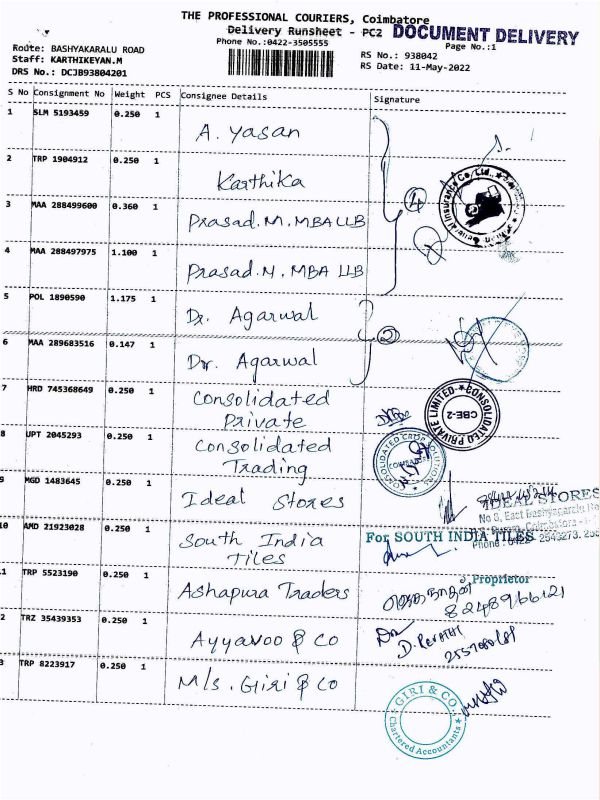 THE PROFESSIONAL COURIERS, Coimbatore
Delivery Runsheet - PC2 DOCUMENT DELIVERY
Phone No.:0422-3505555 Page No.:1
Route: BASHYAKARALU ROAD RS No.: 938042
Staff: KARTHIKEYAN.M RS Date: 11-May-2022
DRS No.: DCJB93804201
S No Consignment No Weight PCS Consignee Details Signature
1 SLM 5193459 0.250 1 A. Yasan
2 TRP 1904912 0.250 1 Karthika
3 MAA 288499600 0.360 1 Prasad.M.MBA LLB
4 MAA 288497975 1.100 1 Prasad.M.MBA LLB
4
General Insurance Co. Ltd.
5 POL 1890590 1.175 1 Dr. Agarwal
6 MAA 289683516 0.147 1 Dr. Agarwal
2
7 HRD 745368649 0.250 1 Consolidated
Private
CONSOLIDATED PRIVATE LIMITED
CBE-2
8 UPT 2045293 0.250 1 Consolidated
Trading
CONSOLIDATED CROP SOLUTIONS
9 MGD 1483645 0.250 1 Ideal Stores
IDEAL STORES
No 8, East Bashyacaralu
Phone: 0422 - 2543273.
10 AMD 21923028 0.250 1 South India
Tiles
For SOUTH INDIA TILES
Proprietor
1 TRP 5523190 0.250 1 Ashapura Traders
8248966121
2 TRZ 35439353 0.250 1 Ayyavoo & Co
D. Revathi
3 TRP 8223917 0.250 1 M/s. Giri & Co
GIRI & CO.
Chartered Accountants